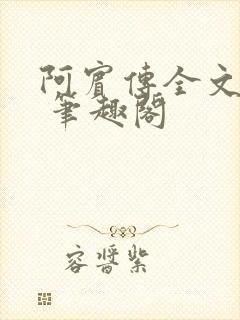 阿賓傳全文
筆趣閣
容晉紫